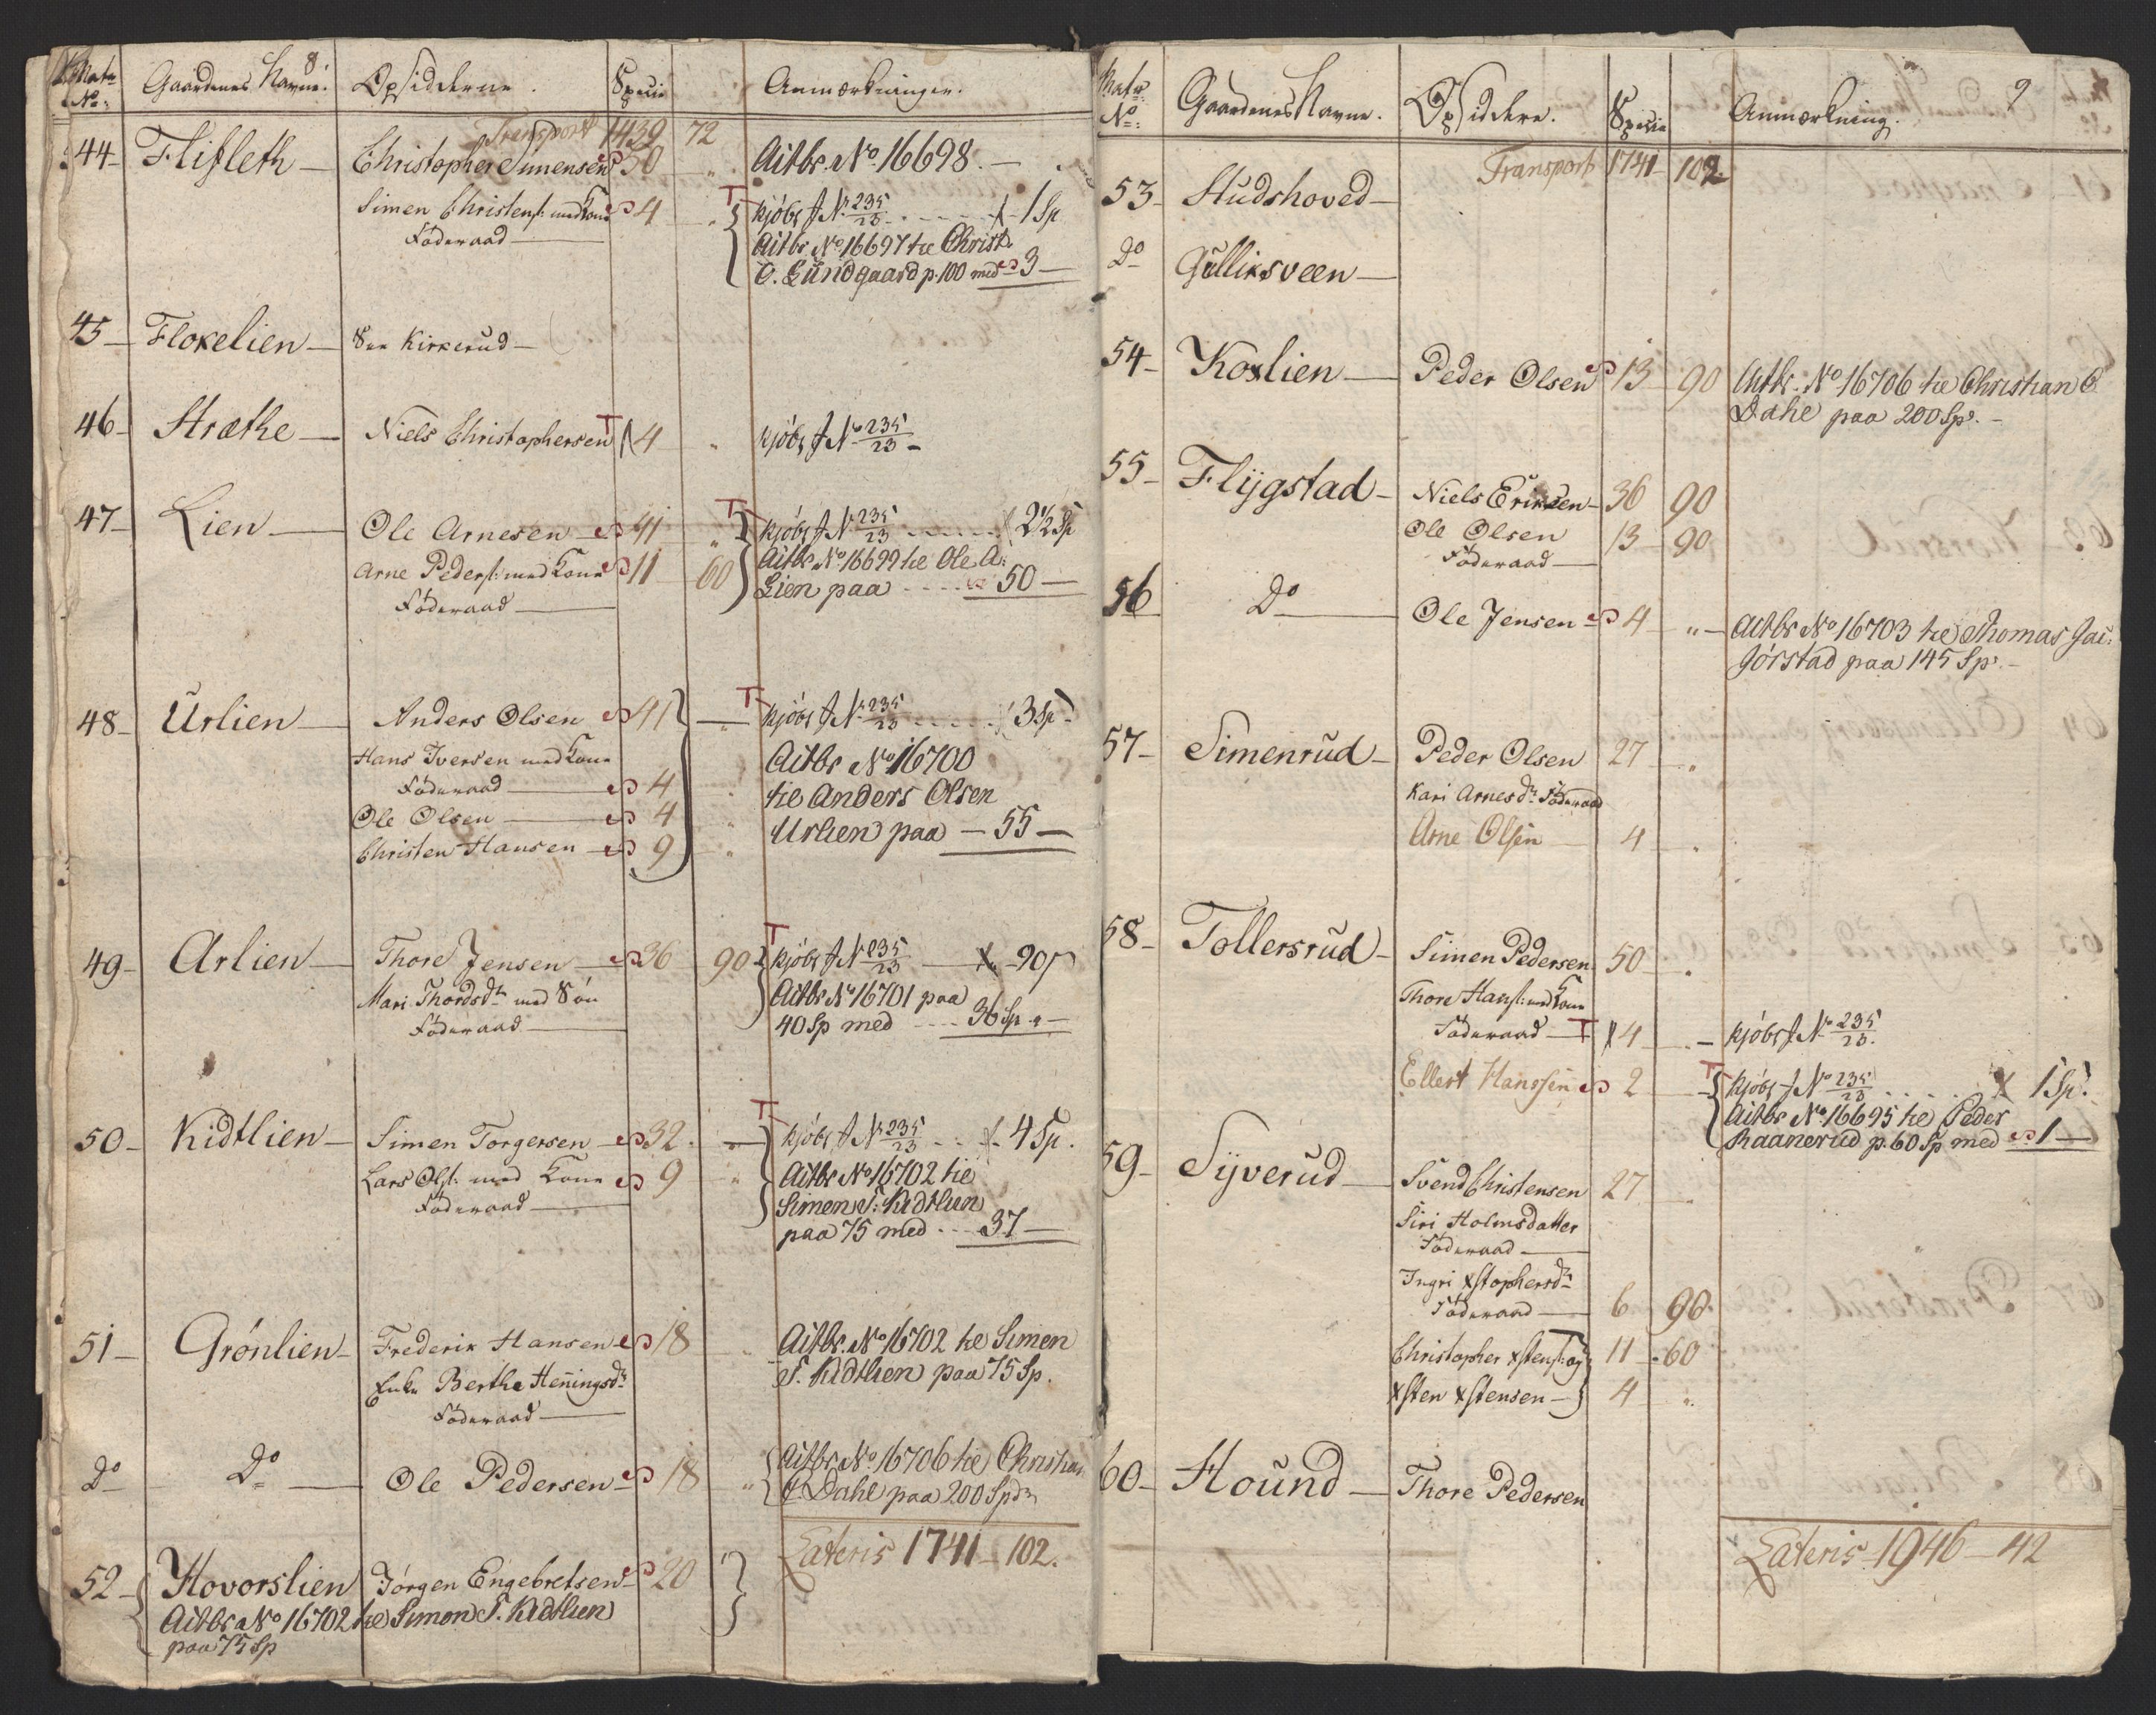 8
Matr No: Gaardenes Navne. Opsidderne. Specie Anmærkninger.
Transport 1439 72
44 - Flisleth - Christopher Simensen 50 " Actbr. No 16698. -
Simen Christens: med Kone 4 " kjöbt J No 235/23 . . . . 1 Sp
Föderaad - Actbr No 16697 til Christ.
O. Lundgaard p. 100 med 3 -
45 - Flokelien - See Kirkerud -
46 - Stræthe - Niels Christophersen 4 " kjöbt J No 235/23 -
47 - Lien - Ole Arnesen - 41 " kjöbt J No 235/23 . . . . 2 1/2 Sp
Arne Peders: med Kone 11 60 Actbr No 16699 til Ole A:
Föderaad - Lien paa . . . . 50 -
48 - Urlien - Anders Olsen 41 - kjöbt J No 235/23 . . . . 3 Sp.
Hans Iversen med Kone Actbr No 16700
Föderaad - 4 " til Anders Olsen
Ole Olsen - 4 " Urlien paa - 55 -
Christen Hansen - 9 "
49 - Arlien - Thore Jensen - 36 90 kjöbt J No 235/23 - 90
Mari Thordsdr med Sön Actbr No 16701 paa
Föderaad - 40 Sp med . . . . 36 Sp " -
50 - Kidtlien - Simen Torgersen - 32 . " kjöbt J No 235/23 . . . 4 Sp.
Lars Ols: med Kone 9 " Actbr No 16702 til
Föderaad - Simen T: Kidtlien
paa 75 med . . . 37 -
51 - Grönlien - Frederik Hansen 18 " Actbr. No 16702 til Simen
Enke Berthe Heningsdr T. Kidtlien paa 75 Sp.
Föderaad -
Do Do - Ole Pedersen - 18 " Actbr No 16706 til Christian
C. Dahl paa 200 Spdr
Lateris 1741 - 102.
52 - Hovorslien Jörgen Engebretsen - 20 "
Actbr No 16702 til Simon T. Kidtlien
paa 75 Sp
9
Matr No: Gaardenes Navne. Opsiddere. Specie Anmærkning.
Transport 1741 - 102.
53 - Studshoved -
Do Gulliksveen -
54 - Koxlien - Peder Olsen 13 90 Actbr. No 16706 til Christian C.
Dahl paa 200 Sp. -
55 - Flÿgstad - Niels Eriksen - 36 90
Ole Olsen 13 - 90
Föderaad -
56 Do - Ole Jensen - 4 - " - Actbr No 16703 til Thomas Jac:
Görstad paa 145 Sp. -
57 - Simenrud - Peder Olsen 27 "
Kari Arnesdr Föderaad
Arne Olsen - 4 "
58 - Tollersrud - Simen Pedersen 50 - "
Thore Hans: med Kone
Föderaad - 4 . - kjöbt J No 235/23.
Ellert Hanssen 2 - kjöbt J No 235/23 . . . . 1 Sp.
Actbr No 16695 til Peder
Raanerud p. 60 Sp med 1 -
59 - Sÿverud - Svend Christensen 27 "
Siri Holmsdatter
Föderaad -
Ingri Xstophersdr
Föderaad - 6 90.
Christopher Xstens: og 11 - 60
Xsten Xstensen - 4 "
60 - Hound - Thore Pedersen
Lateris - 1946 - 42